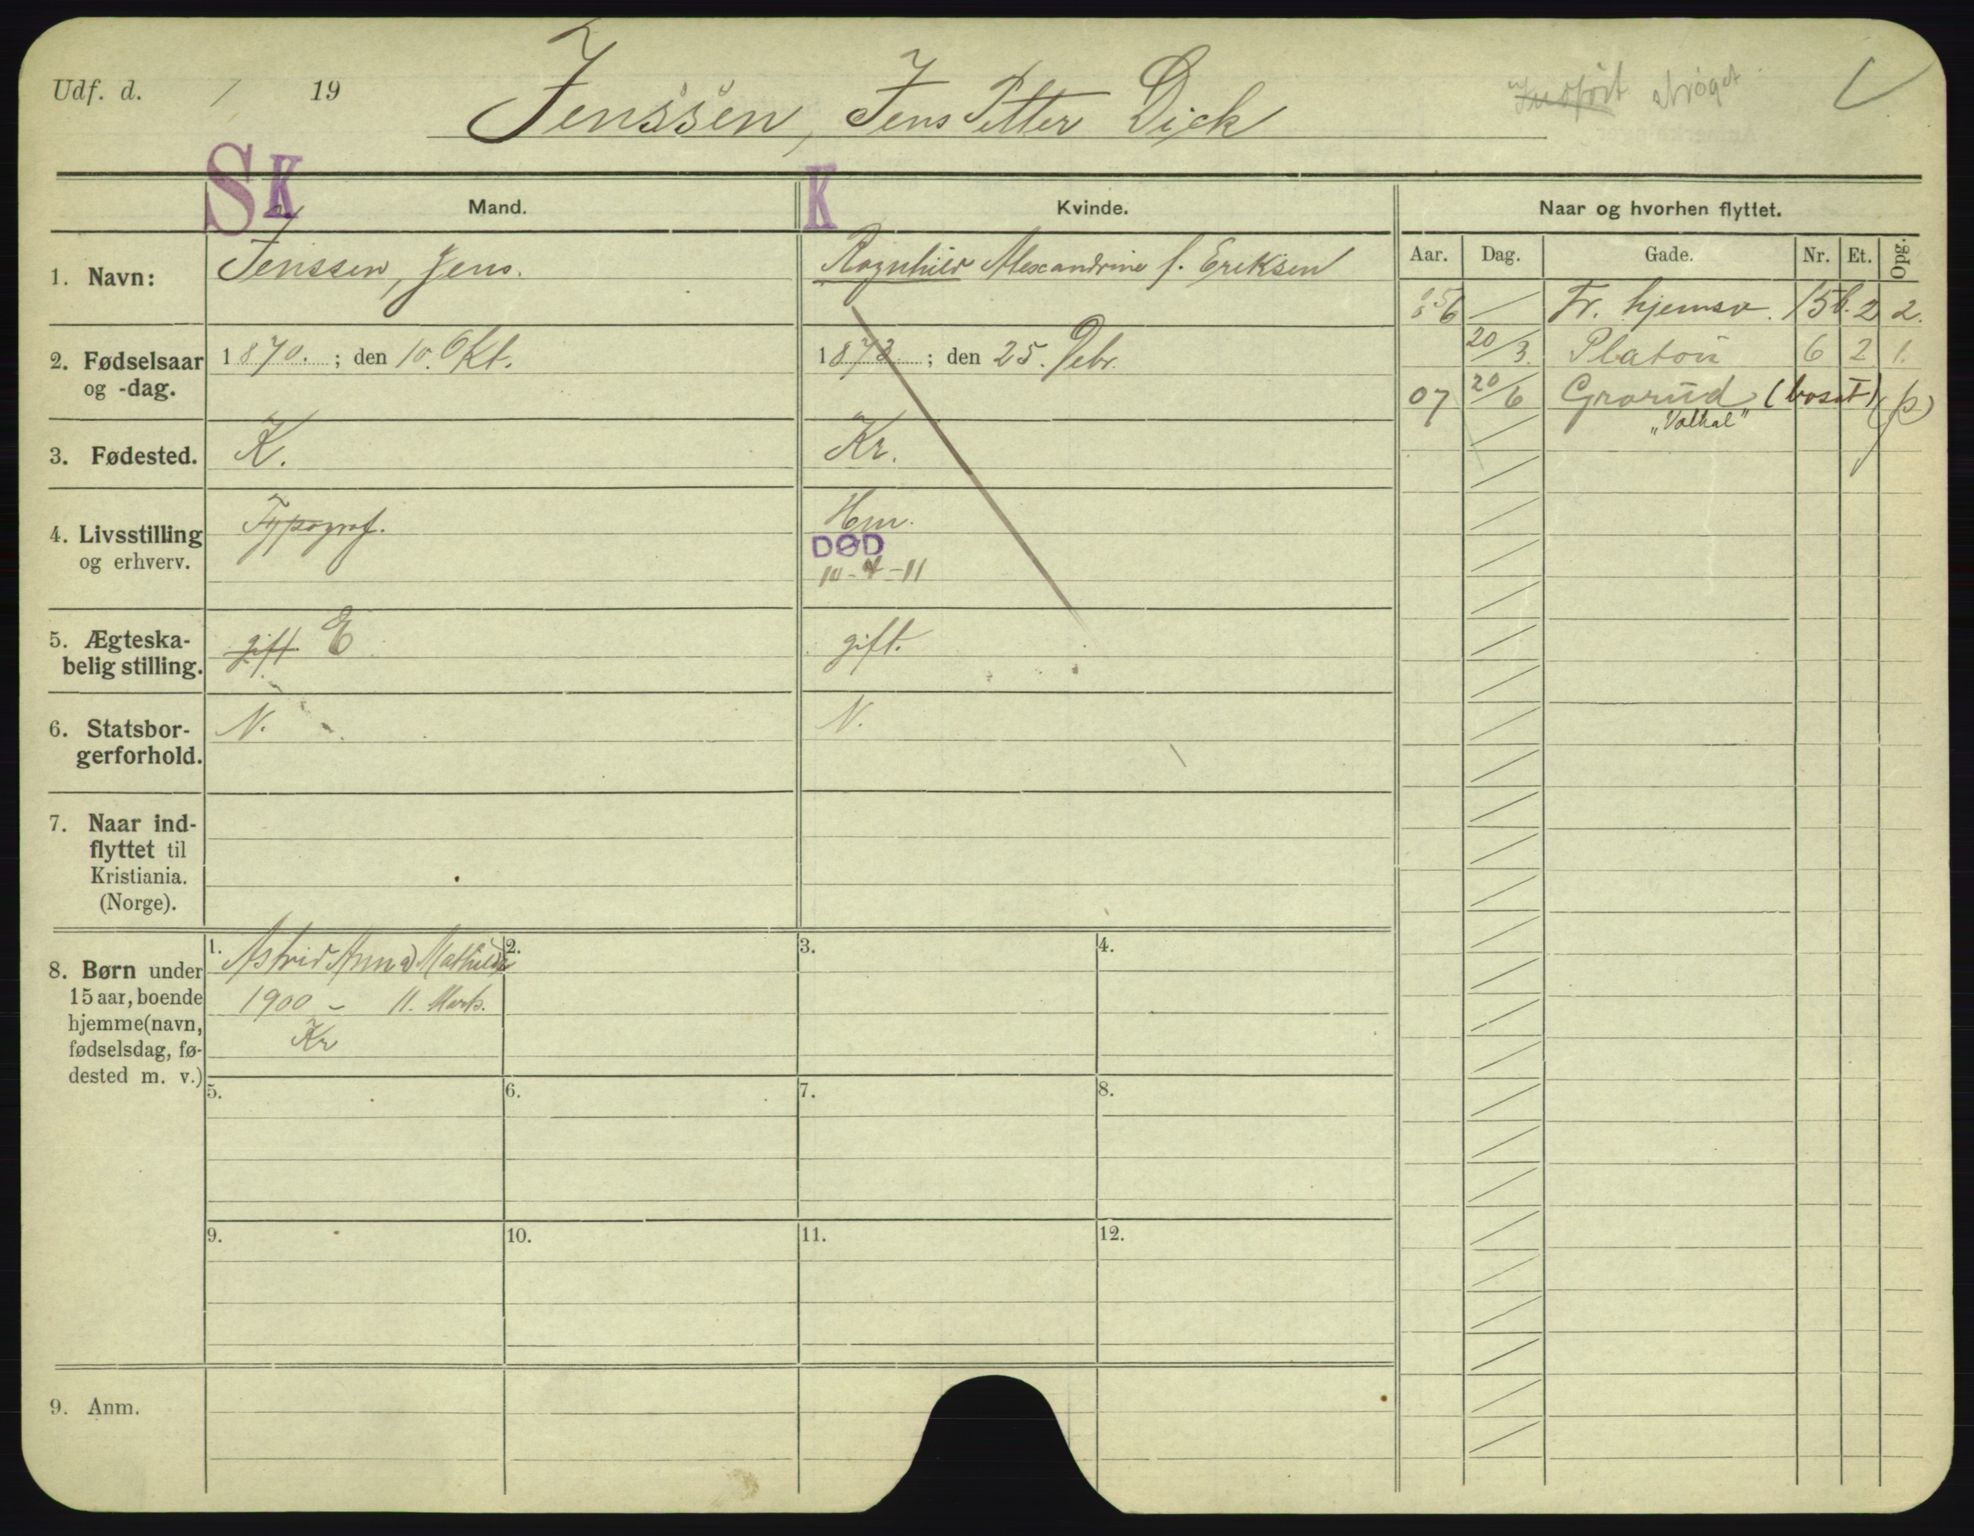 Udf. d. / 19
Jenssen, Jens Petter Dick
strøget
S K K
Mand. Kvinde. Naar og hvorhen flyttet.
Aar. Dag. Gade. Nr. Et. Opg.
1. Navn: Jenssen, Jens. Ragnhild Alexandrine f. Eriksen
Fr. hjemsv. 15b. 2 2.
20/3. Platou 6 2 1.
2. Fødselsaar og -dag. 1870. ; den 10. Okt. 1873 ; den 25. Febr.
07 20/6 Grorud (bosat) (p)
"Valhal"
3. Fødested. K. Kr.
4. Livsstilling og erhverv. Typograf. Hm.
DØD
5. Ægteska-
belig stilling. gift E gift.
6. Statsbor-
gerforhold. N. N.
7. Naar ind-
flyttet til
Kristiania.
(Norge).
8. Børn under
15 aar, boende
hjemme (navn,
fødselsdag, fø-
dested m. v.)
1. Astrid Anna Mathilde 2. 3. 4.
1900 - 11. Marts.
Kr
5. 6. 7. 8.
9. 10. 11. 12.
9. Anm.